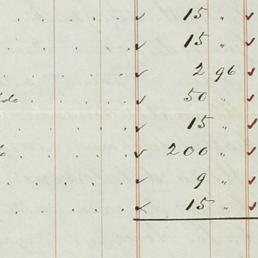 . . . . ✓ 15 " ✓
. . . . ✓ 15 " ✓
. . . . ✓ 2 96 ✓
do . . . . ✓ 50 " ✓
. . . . ✓ 15 " ✓
. . . . ✓ 200 " ✓
. . . . ✓ 9 " ✓
. . . . ✓ 15 " ✓